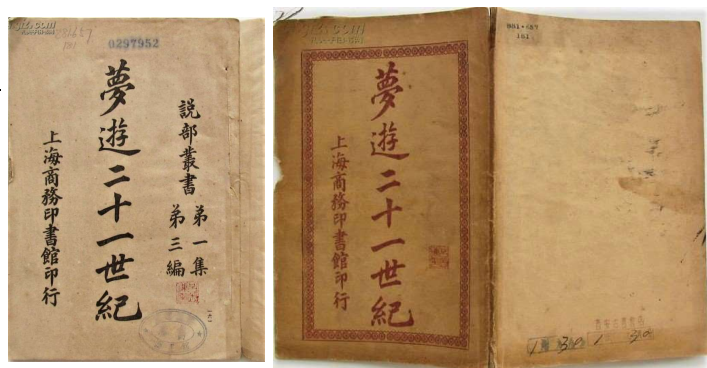 0297952
說部叢書 第一集
第三編
夢遊二十一世紀
上海商務印書館印行
夢遊二十一世紀
上海商務印書館印行
181